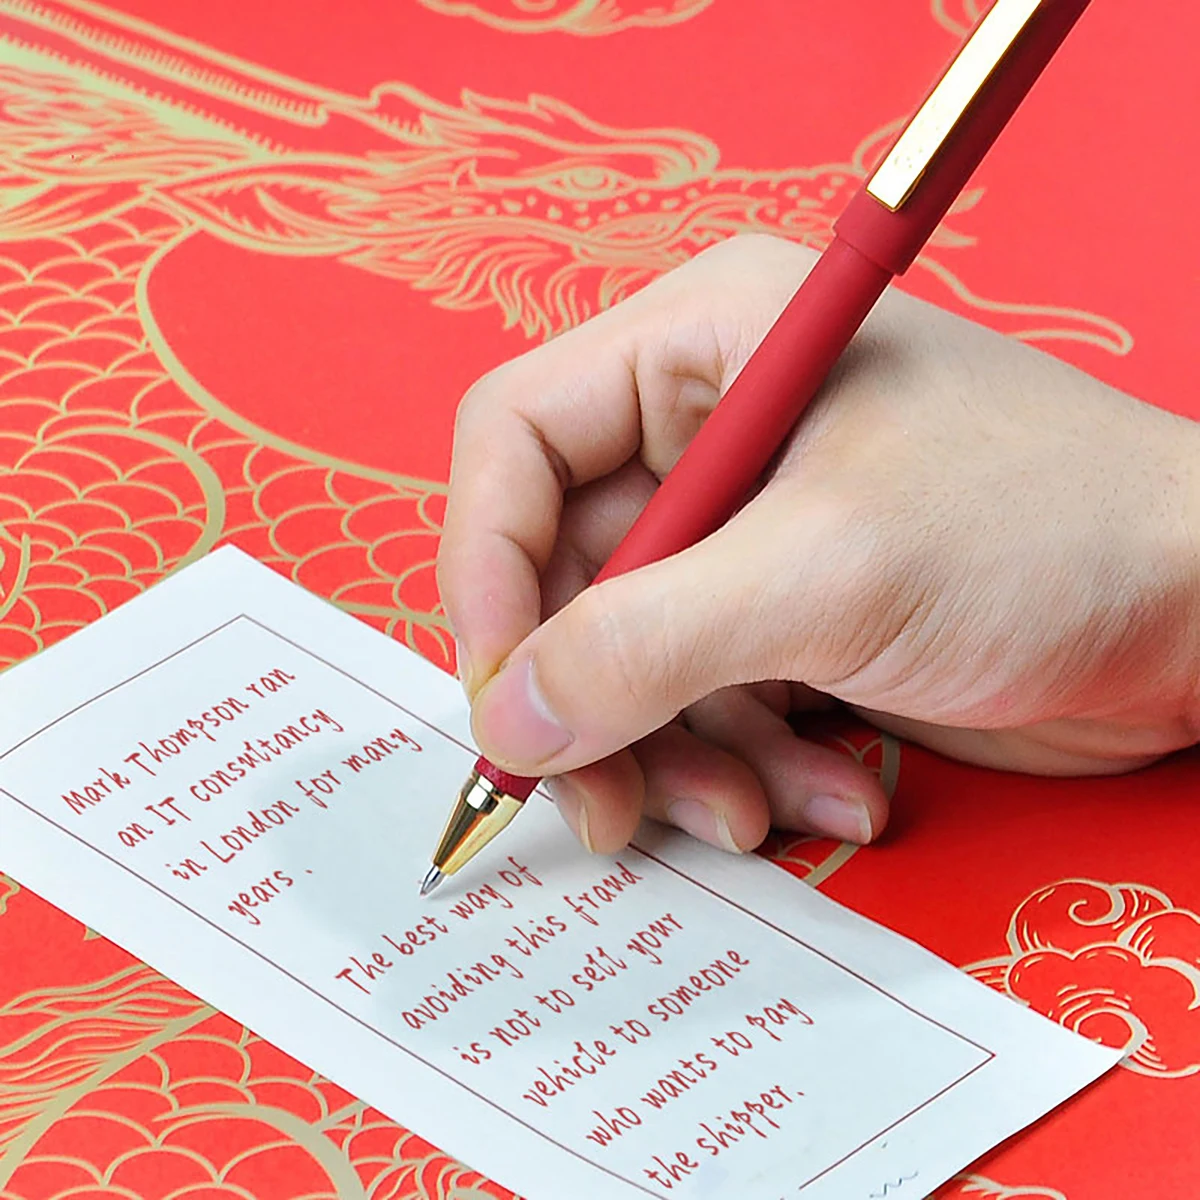 Mark Thompson ran
an IT consultancy
in London for many
years .
The best way of
avoiding this fraud
is not to sell your
vehicle to someone
who wants to pay
the shipper.